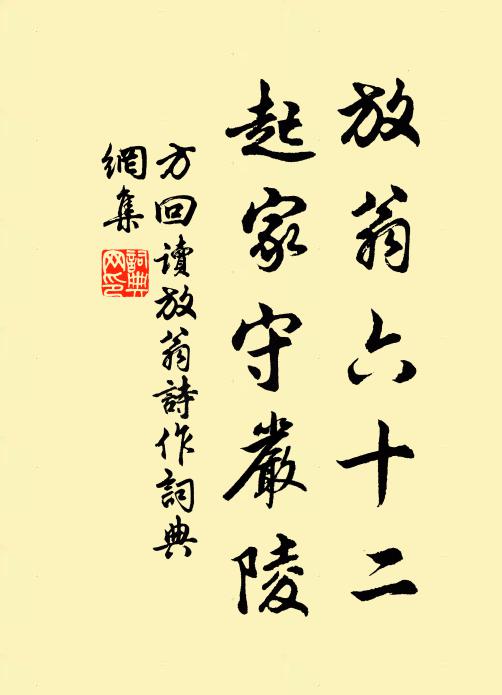 放翁六十二
起家守嚴陵
方回讀放翁詩作詞典
網集
詞典
网印